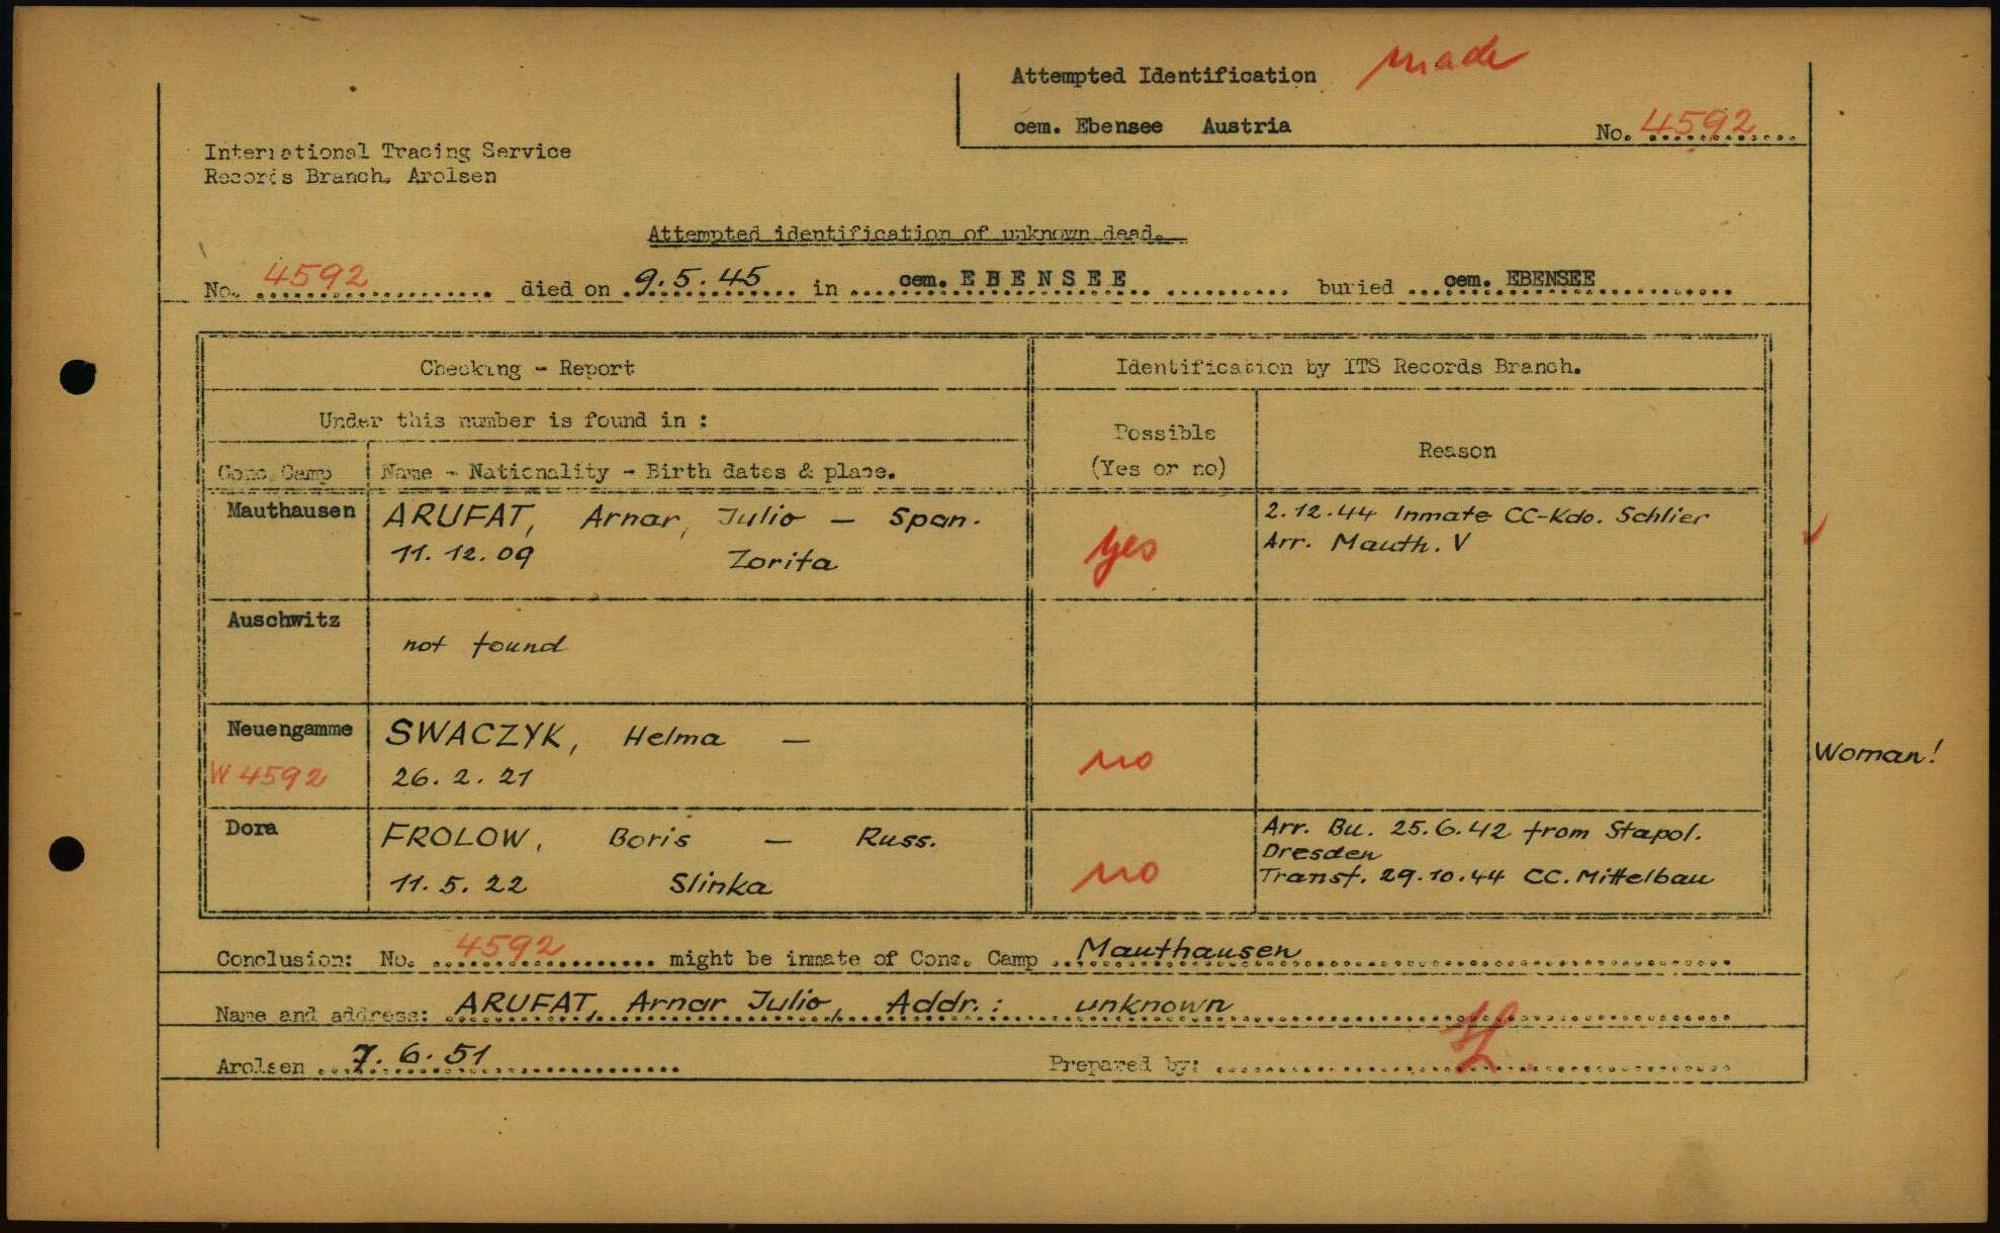 Attempted Identification made
cem. Ebensee Austria No. 4592
International Tracing Service
Records Branch, Arolsen
Attempted identification of unknown dead.
No. 4592 died on 9.5.45 in cem. EBENSEE buried cem. EBENSEE
Checking - Report
Identification by ITS Records Branch.
Under this number is found in :
Possible
(Yes or no)
Reason
Conc. Camp Name - Nationality - Birth dates & place.
Mauthausen ARUFAT, Arnar, Julio — Span.
11.12.09 Zorita
yes
2.12.44 Inmate CC-Kdo. Schlier
Arr. Mauth. V
Auschwitz
not found
Neuengamme SWACZYK, Helma —
W 4592 26.2.21
no
Woman!
Dora FROLOW, Boris — Russ.
11.5.22 Slinka
no
Arr. Bu. 25.6.42 from Stapol.
Dresden
Transf. 29.10.44 CC. Mittelbau
Conclusion: No. 4592 might be inmate of Conc. Camp Mauthausen
Name and address: ARUFAT, Arnar Julio, Addr.: unknown
Arolsen 7.6.51 Prepared by: